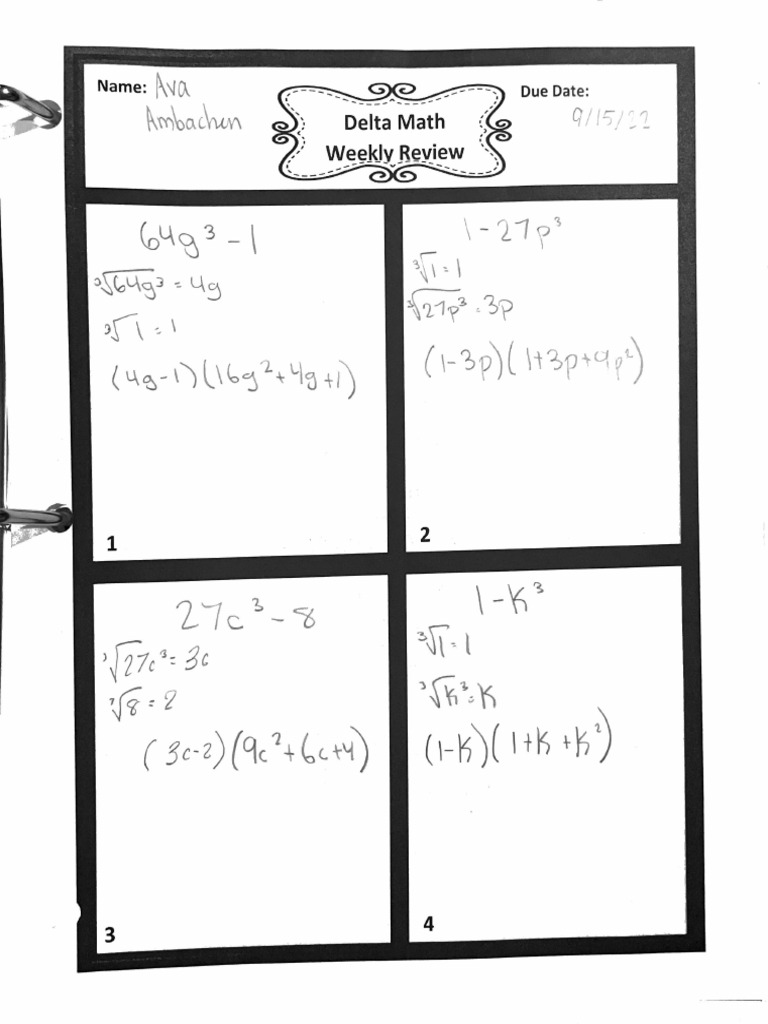 Name: Ava
Ambachen
Delta Math
Weekly Review
Due Date:
9/15/22
64g³ - 1
∛64g³ = 4g
∛1 = 1
(4g-1)(16g²+4g+1)
1
1 - 27p³
∛1 = 1
∛27p³ = 3p
(1-3p)(1+3p+9p²)
2
27c³ - 8
∛27c³ = 3c
∛8 = 2
(3c-2)(9c²+6c+4)
3
1 - K³
∛1 = 1
∛K³ = K
(1-K)(1+K+K²)
4